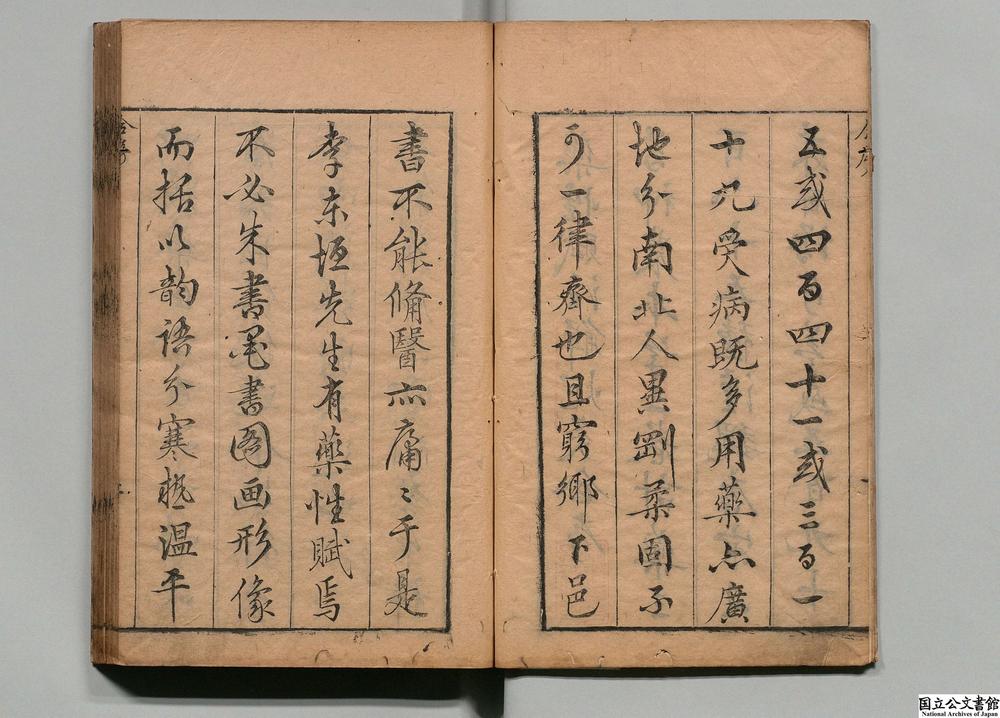 五或四百四十一或三百一
十九受病既多用藥亦廣
地分南北人異剛柔固不
可一律齊也且窮鄉下邑
書不能俻醫亦庸〻于是
李东垣先生有藥性賦焉
不必朱書墨書图画形像
而括以韵语分寒热温平
国立公文書館
National Archives of Japan